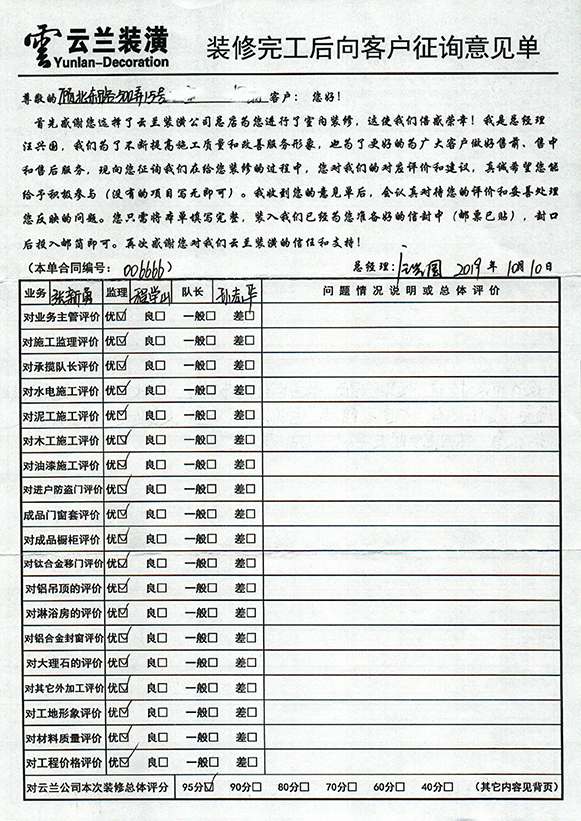 雲 云兰装潢
Yunlan-Decoration
装修完工后向客户征询意见单
尊敬的 顾北东路500弄15号 客户：您好！
首先感谢您选择了云兰装潢公司总店为您进行了室内装修，这使我们倍感荣幸！我是总经理
汪兴国，我们为了不断提高施工质量和改善服务形象，也为了更好的为广大客户做好售前、售中
和售后服务，现向您征询我们在给您装修的过程中，您对我们的对应评价和建议，真诚希望您能
给予积极参与（没有的项目写无即可）。我收到您的意见单后，会认真对待您的评价和妥善处理
您反映的问题。您只需将本单填写完整，装入我们已经为您准备好的信封中（邮票已贴），封口
后投入邮筒即可。再次感谢您对我们云兰装潢的信任和支持！
（本单合同编号：006666）
总经理：汪兴国 2019 年 10月10日
业务 张新勇 监理 程学山 队长 孙志华 问题情况说明或总体评价
对业务主管评价 优☑ 良□ 一般□ 差□
对施工监理评价 优☑ 良□ 一般□ 差□
对承揽队长评价 优☑ 良□ 一般□ 差□
对水电施工评价 优☑ 良□ 一般□ 差□
对泥工施工评价 优☑ 良□ 一般□ 差□
对木工施工评价 优☑ 良□ 一般□ 差□
对油漆施工评价 优☑ 良□ 一般□ 差□
对进户防盗门评价 优☑ 良□ 一般□ 差□
成品门窗套评价 优☑ 良□ 一般□ 差□
对成品橱柜评价 优☑ 良□ 一般□ 差□
对钛合金移门评价 优☑ 良□ 一般□ 差□
对铝吊顶的评价 优☑ 良□ 一般□ 差□
对淋浴房的评价 优☑ 良□ 一般□ 差□
对铝合金封窗评价 优☑ 良□ 一般□ 差□
对大理石的评价 优☑ 良□ 一般□ 差□
对其它外加工评价 优☑ 良□ 一般□ 差□
对工地形象评价 优☑ 良□ 一般□ 差□
对材料质量评价 优☑ 良□ 一般□ 差□
对工程价格评价 优☑ 良□ 一般□ 差□
对云兰公司本次装修总体评分 95分☑ 90分□ 80分□ 70分□ 60分□ 40分□ （其它内容见背页）